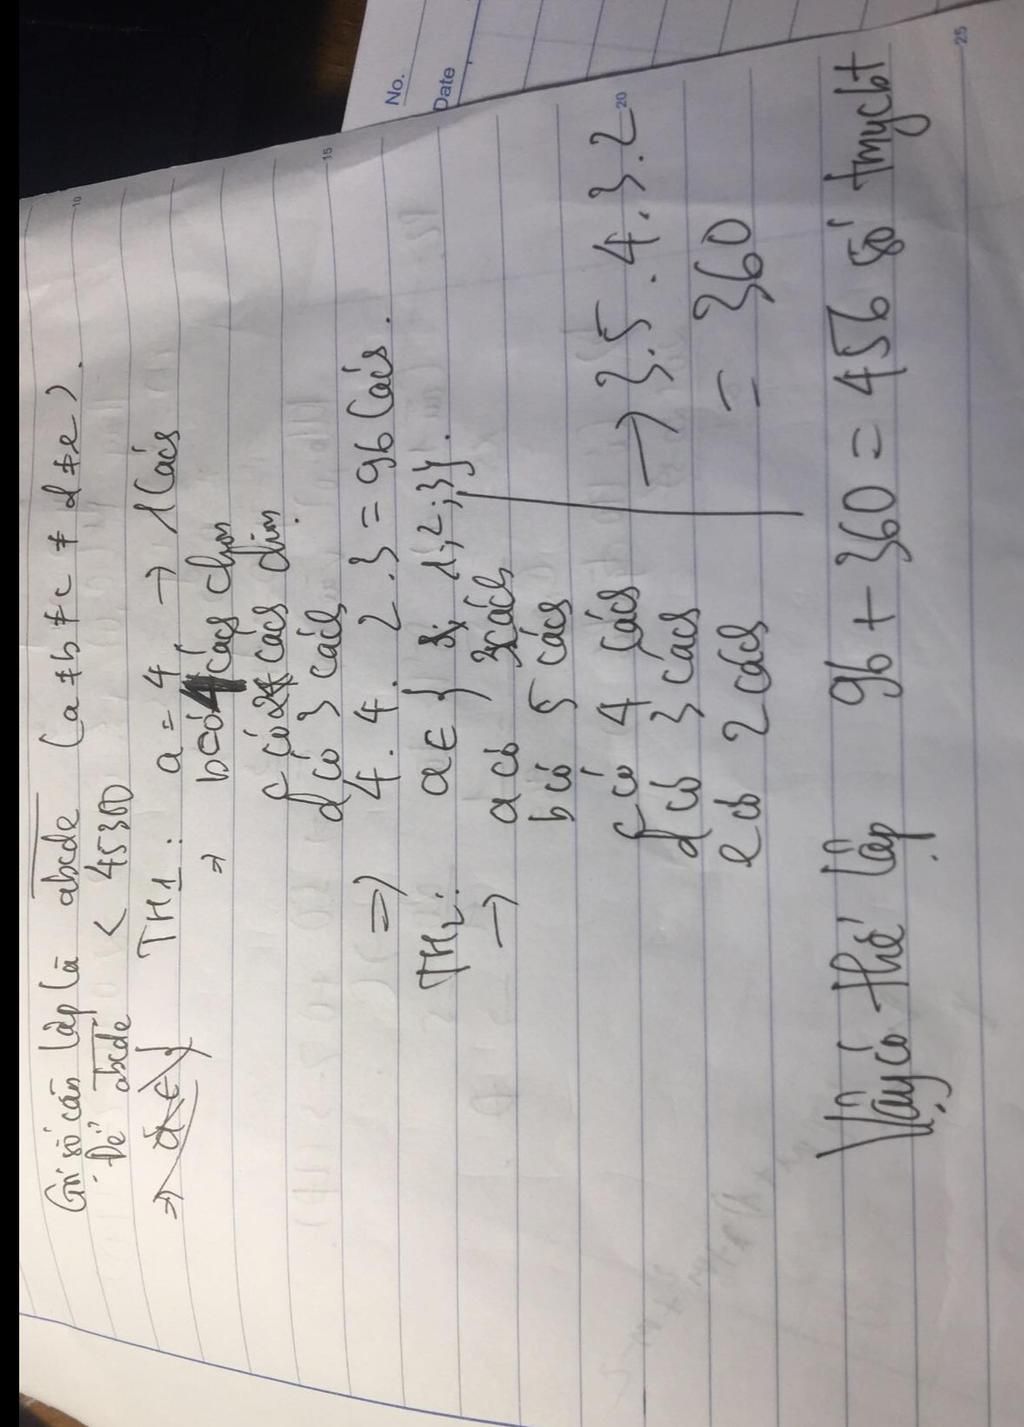 No.
Date
Gọi số cần lập là abcde (a ≠ b ≠ c ≠ d ≠ e).
Để abcde < 45300
TH1: a = 4 → 1 Cách
⇒ b có 4 cách chọn
c có 2 cách
d có 3 cách
⇒ 4. 4. 2. 3 = 96 Cách.
TH2: a ∈ { 1; 2; 3}.
→ a có 3 cách
b có 5 cách
c có 4 cách
d có 3 cách
e có 2 cách
→ 3. 5. 4. 3. 2
= 360
Vậy có thể lập 96 + 360 = 456 số tmycbt
10
15
20
25